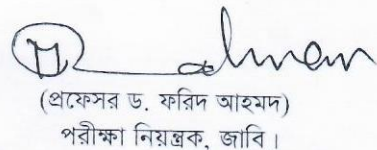 (প্রফেসর ড. ফরিদ আহমদ)
পরীক্ষা নিয়ন্ত্রক, জাবি।